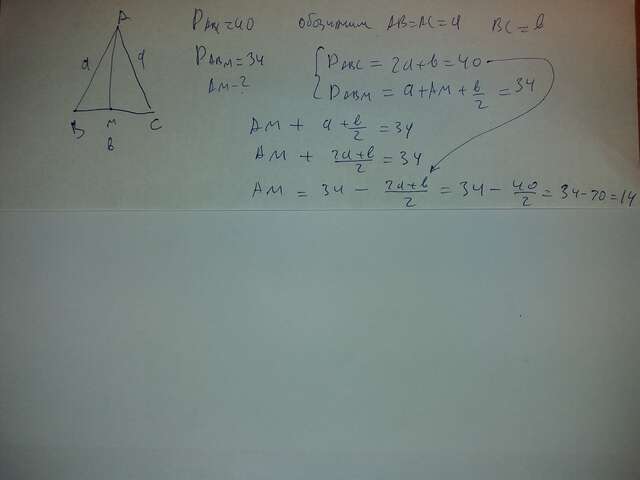 A
a
a
B
M
C
в
P_ABC = 40 обозначим AB = AC = a BC = в
P_ABM = 34
AM - ?
{ P_ABC = 2a + в = 40
P_ABM = a + AM + в/2 = 34
AM + a + в/2 = 34
AM + (2a + в)/2 = 34
AM = 34 - (2a + в)/2 = 34 - 40/2 = 34 - 20 = 14